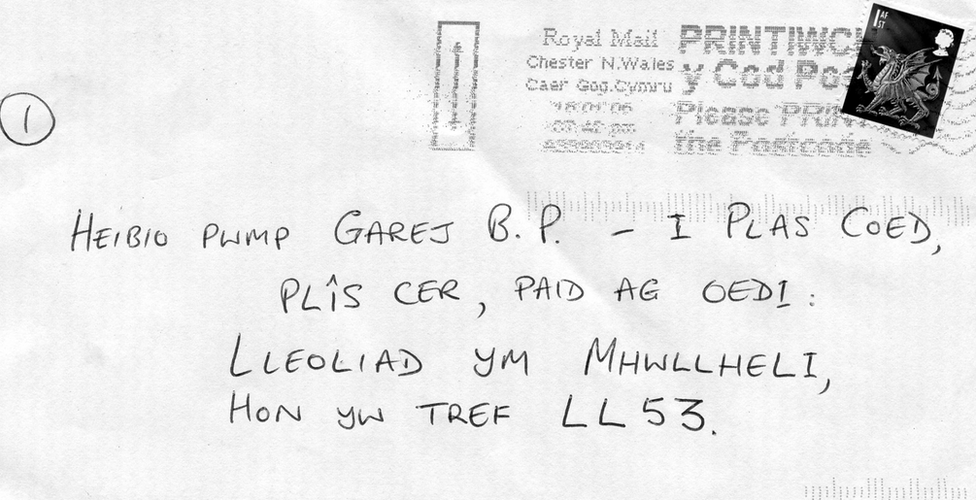 Royal Mail
Chester N.Wales
Caer Gog.Cymru
PRINTIWCH
y Cod
Please PRINT
the Postcode
1AF
ST
1
HEIBIO PWMP GAREJ B.P. – I PLAS COED,
PLÎS CER, PAID AG OEDI:
LLEOLIAD YM MHWLLHELI,
HON YW TREF LL53.